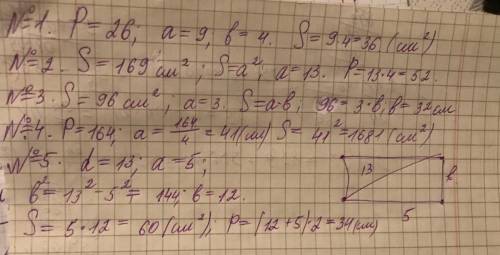 №1. P=26; a=9, b=4. S=9·4=36 (см²)
№2. S=169см²; S=a²; a=13. P=13·4=52.
№3. S=96см²; a=3. S=a·b; 96=3·b; b=32см
№4. P=164; a=164/4=41(см) S=41²=1681 (см²)
№5. d=13; a=5;
13
b
b²=13²-5²=144; b=12.
5
S=5·12=60(см²), P=(12+5)·2=34(см)